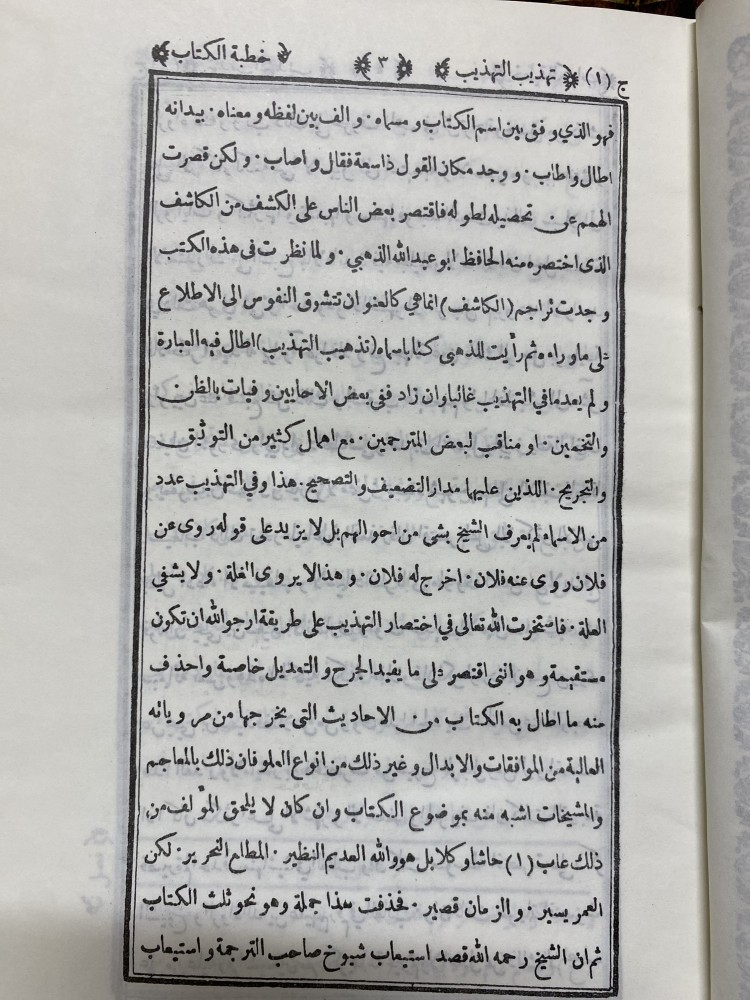 ج (١) تهذيب التهذيب ٣ خطبة الكتاب
فهو الذي وفق بين اسم الكتاب و مسماه · و الف بين لفظه و معناه · بيد انه
اطال واطاب · و وجد مكان القول ذاسعة فقال و اصاب · و لكن قصرت
الهمم عن تحصيله لطوله فاقتصر بعض الناس على الكشف من الكاشف
الذى اختصره منه الحافظ ابو عبد الله الذهبي · و لما نظرت فى هذه الكتب
و جدت تراجم (الكاشف) انماهي كالعنوان تتشوق النفوس الى الاطلاع
على ماوراءه ثم رأيت للذهبى كتابا سماه (تذهيب التهذيب) اطال فيه العبارة
و لم يعد مافي التهذيب غالبا وان زاد ففى بعض الاحايين و فيات بالظن
والتخمين · او مناقب لبعض المترجمين · مع اهمال كثير من التوثيق
والتجريح · اللذين عليهما مدار التضعيف والتصحيح · هذا وفي التهذيب عدد
من الاسماء لم يعرف الشيخ بشئ من احوالهم بل لا يزيد على قوله روى عن
فلان روى عنه فلان · اخرج له فلان · و هذا لا يروى الغلة · و لا يشفي
العلة · فاستخرت الله تعالى في اختصار التهذيب على طريقة ارجو الله ان تكون
مستقيمة و هو اننى اقتصر على ما يفيد الجرح و التعديل خاصة واحذف
منه ما اطال به الكتاب من الاحاديث التى يخرجها من مروياته
العالية من الموافقات والابدال و غير ذلك من انواع العلو فان ذلك بالمعاجم
والمشيخات اشبه منه بموضوع الكتاب و ان كان لا يلحق المؤلف من
ذلك عاب (١) حاشا و كلا بل هو والله العديم النظير · المطلع النحرير · لكن
العمر يسير · و الزمان قصير · فحذفت هذا جملة وهو نحو ثلث الكتاب
ثم ان الشيخ رحمه الله قصد استيعاب شيوخ صاحب الترجمة و استيعاب